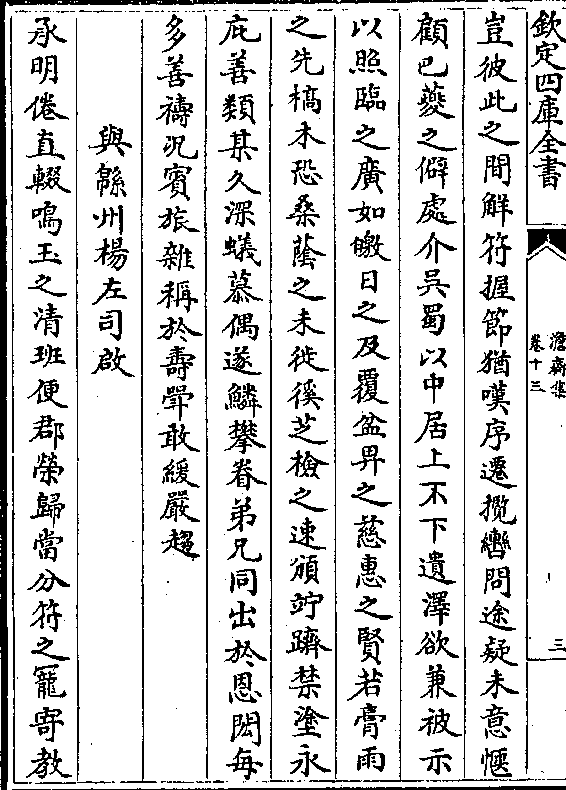 欽定四庫全書
澹齋集
卷十三
三
豈彼此之間解符握節猶嘆序遷攬轡問途疑未意愜
顧巴夔之僻處介吳蜀以中居上不下遺澤欲兼被示
以照臨之廣如皦日之及覆盆畀之慈惠之賢若膏雨
之先槁木恐桑蔭之未徙徯芝檢之速頒竚躋禁塗永
庇善類某久深蟻慕偶遂鱗攀眷弟兄同出於恩閎每
多善禱况賓旅雜稱於壽斝敢緩嚴趨
與緜州楊左司啟
承明倦直輟鳴玉之清班便郡榮歸當分符之寵寄教